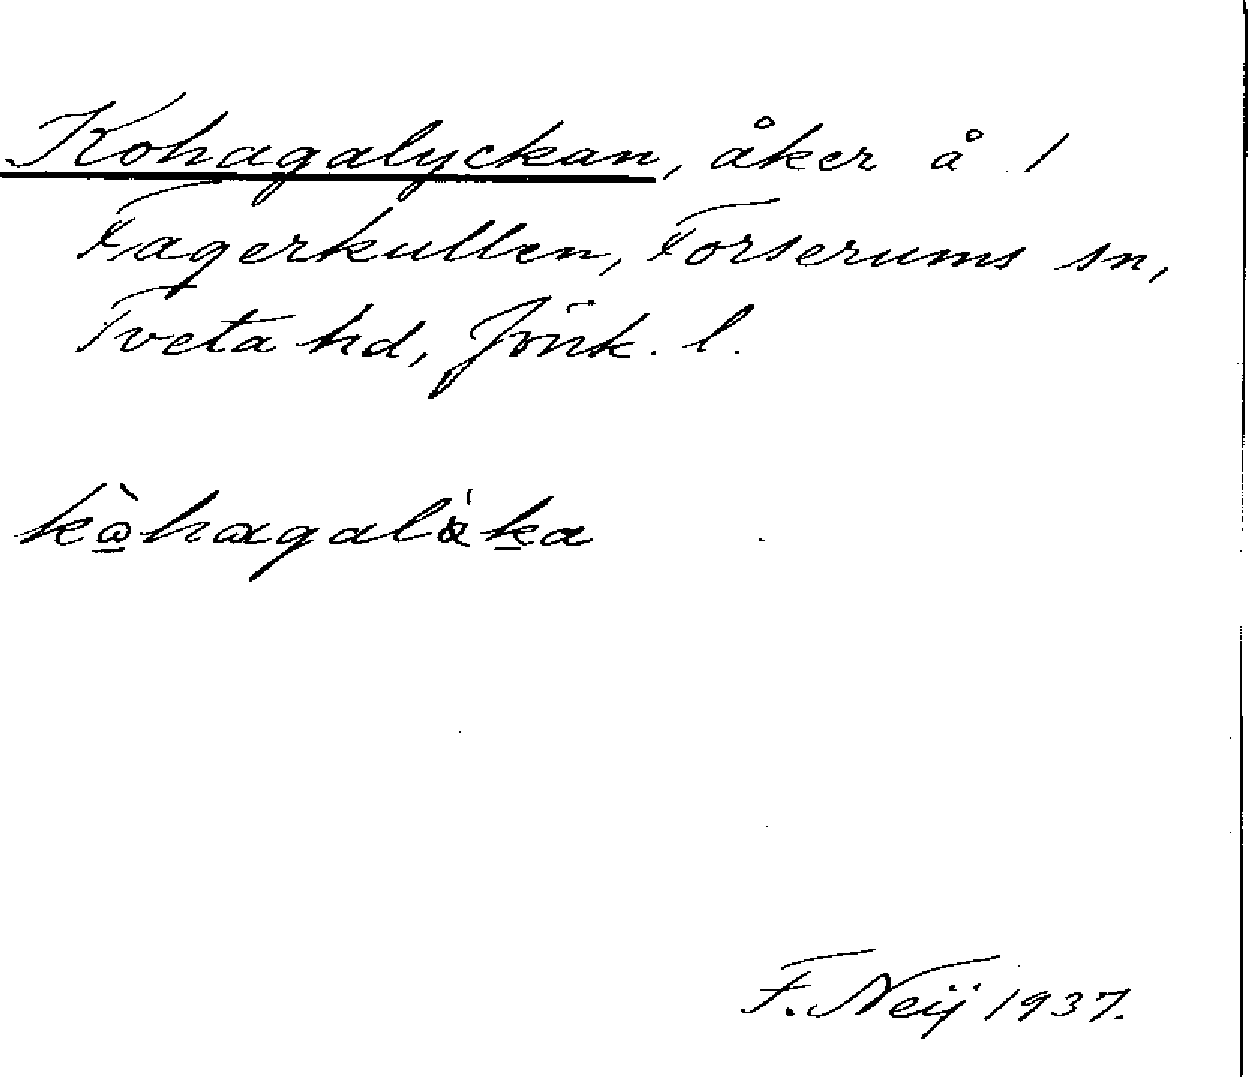 Kohagalyckan, åker å 1
Fagerkullen, Forserums sn,
Tveta hd, Jönk. l.
F. Neij 1937.